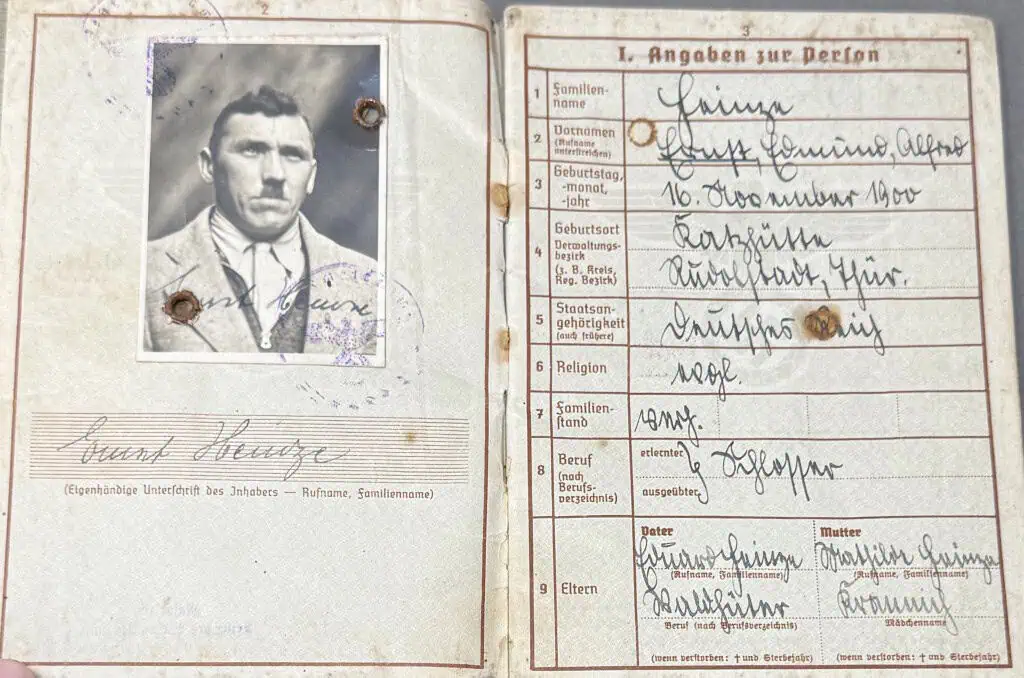 2
Ernst Heinze
Ernst Heinze
(Eigenhändige Unterschrift des Inhabers — Rufname, Familienname)
3
I. Angaben zur Person
1 Familien-
name
Heinze
2 Vornamen
(Rufname
unterstreichen)
Ernst, Edmund, Alfred
3 Geburtstag,
-monat,
-jahr
16. November 1900
4 Geburtsort
Verwaltungs-
bezirk
(z. B. Kreis,
Reg. Bezirk)
Katzhütte
Rudolstadt, Thür.
5 Staatsan-
gehörigkeit
(auch frühere)
Deutsches Reich
6 Religion
evgl.
7 Familien-
stand
verh.
8 Beruf
(nach
Berufs-
verzeichnis)
erlernter
ausgeübter
Schlosser
9 Eltern
Vater
Eduard Heinze
(Rufname, Familienname)
Waldhüter
Beruf (nach Berufsverzeichnis)
(wenn verstorben: † und Sterbejahr)
Mutter
Mathilde Heinze
(Rufname, Familienname)
Krannich
Mädchenname
(wenn verstorben: † und Sterbejahr)